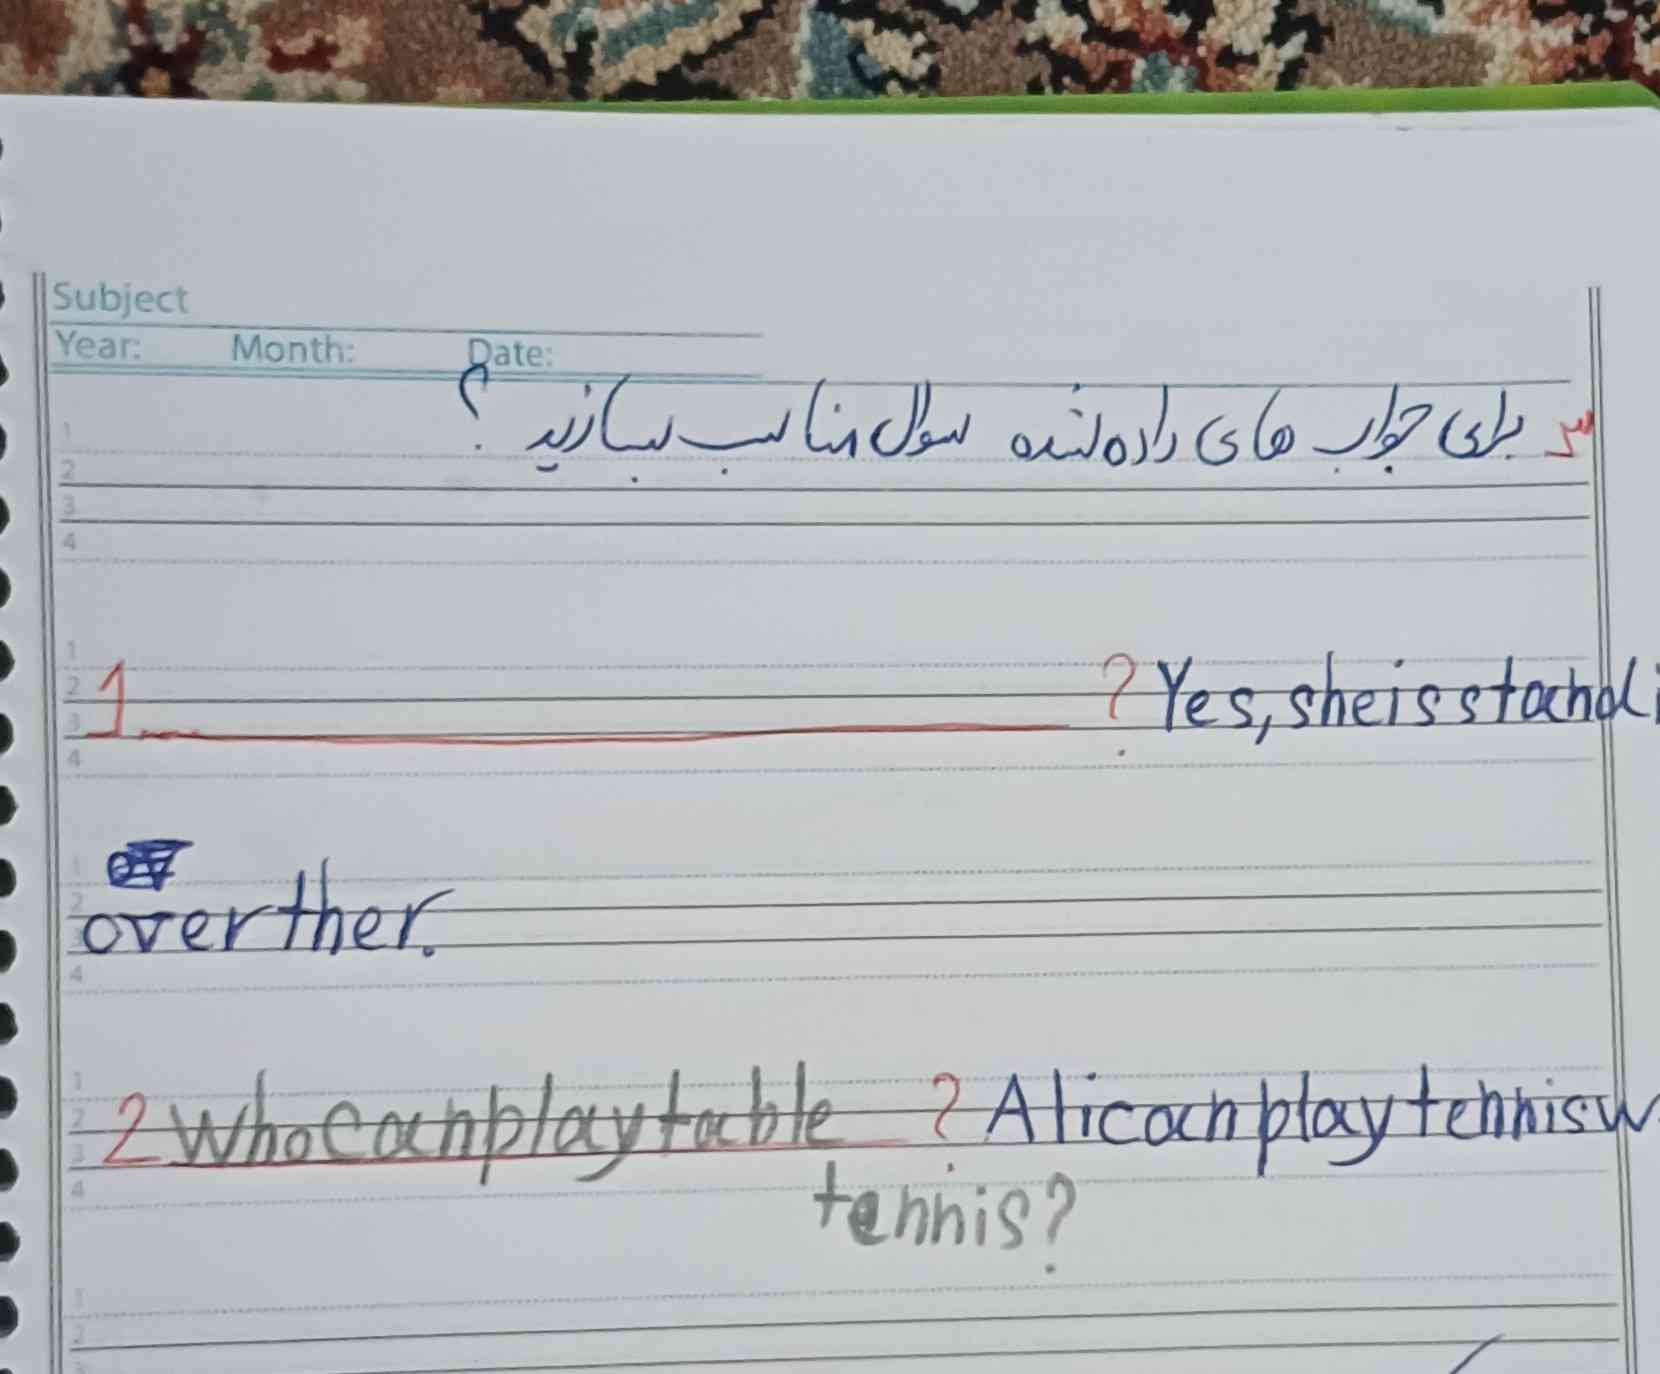 Subject
Year: Month: Date:
س برای جواب های داده شده سوال مناسب بسازید ؟
1 ? Yes, she is standi
over ther.
2 Who can play table ? Ali can play tennis w
tennis?